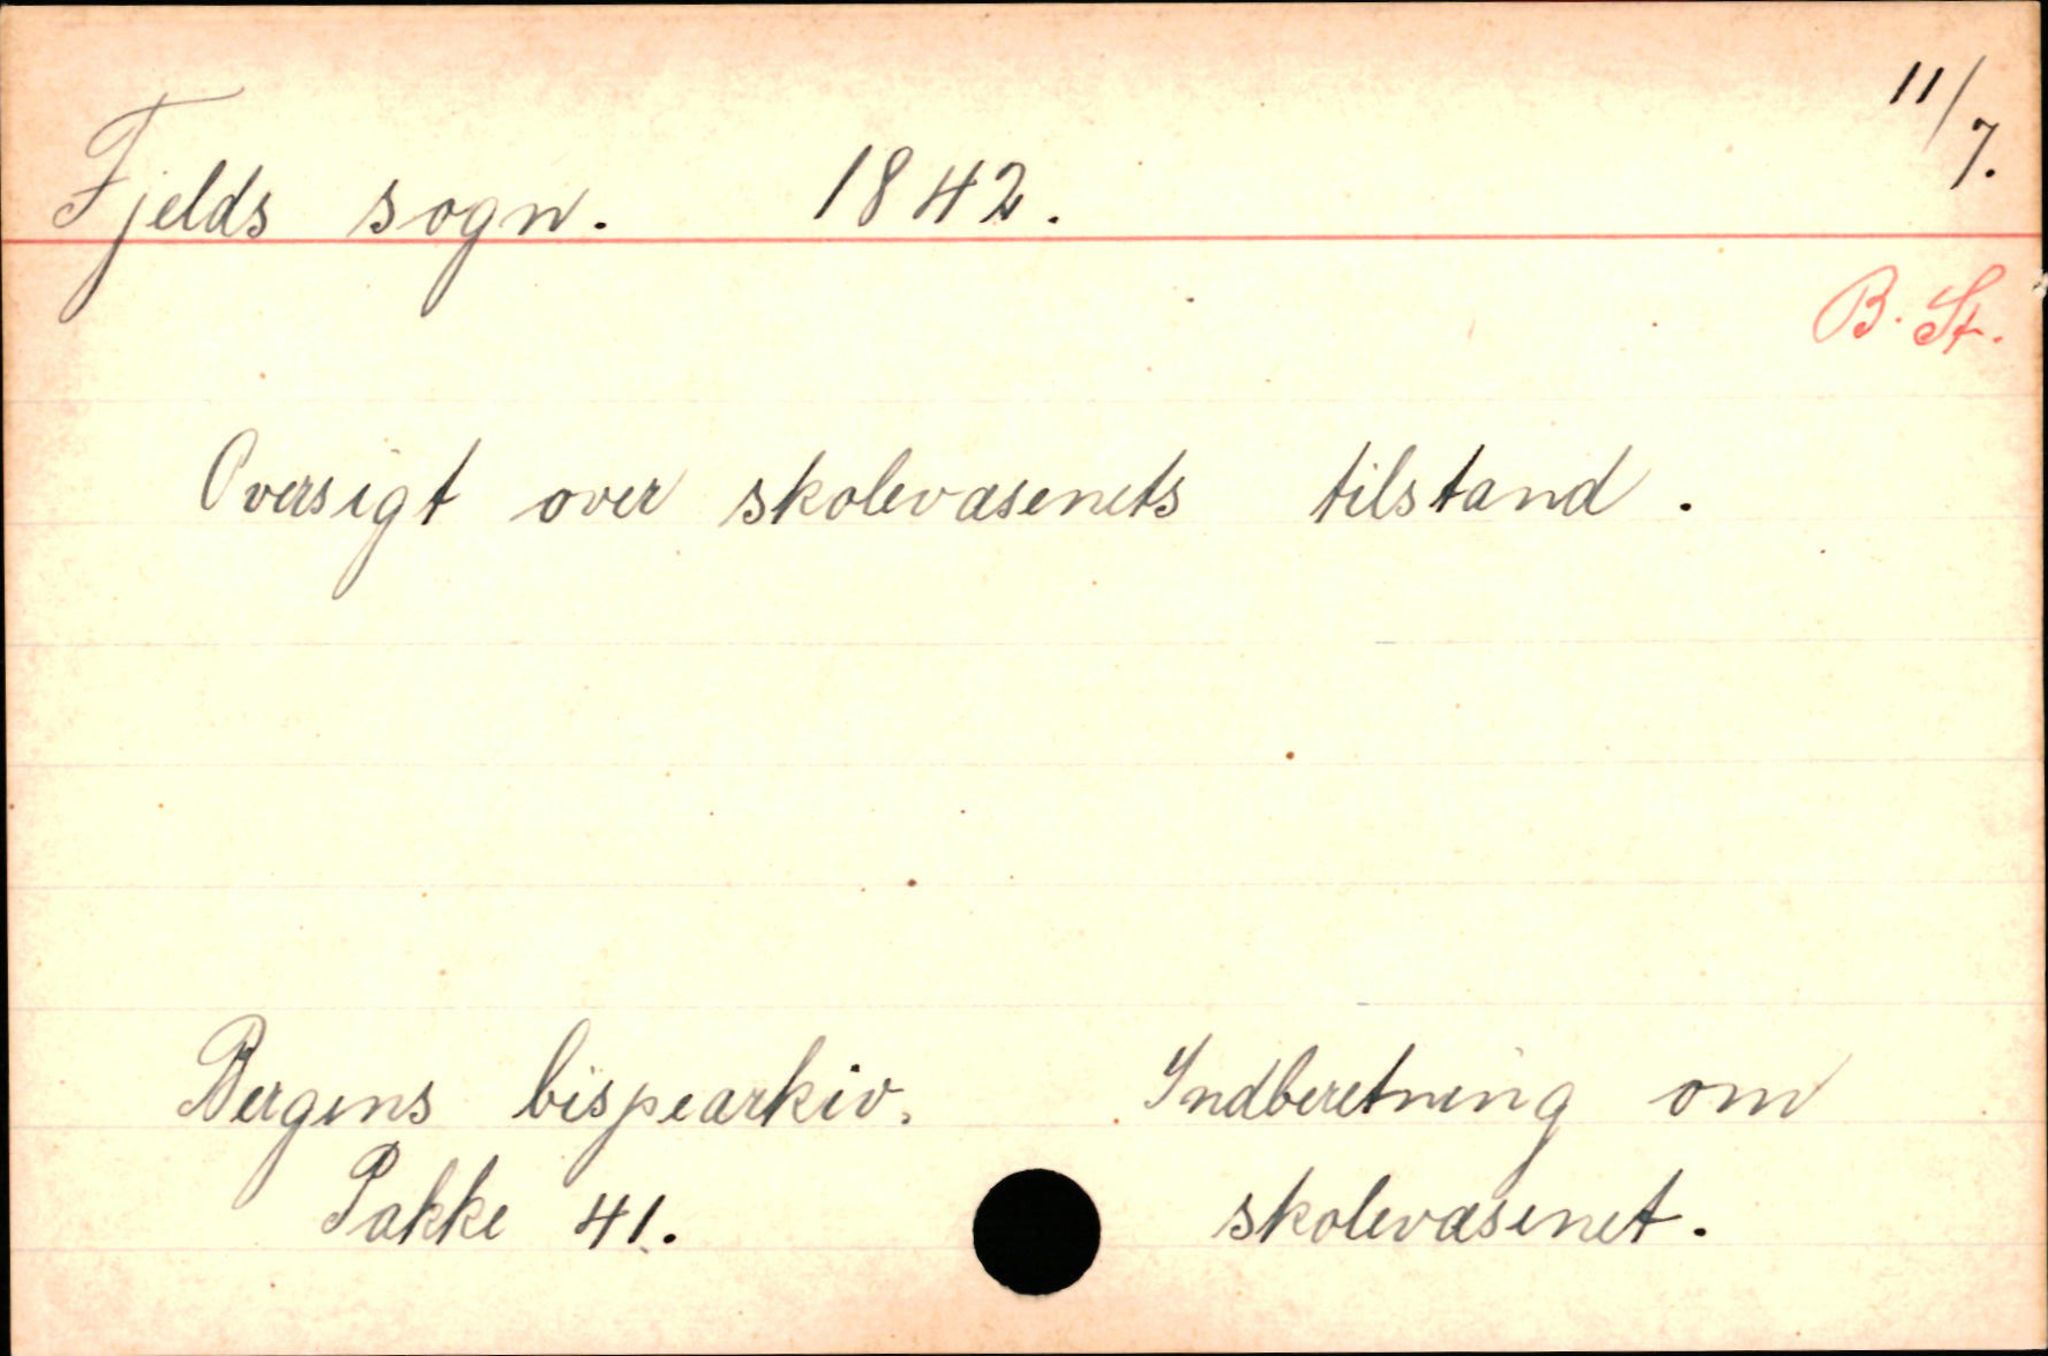 Fjelds sogn. 1842. 11/7.
B. St.
Oversigt over skolevæsenets tilstand.
Bergens bispearkiv. Indberetning om
Pakke 41. skolevæsenet.